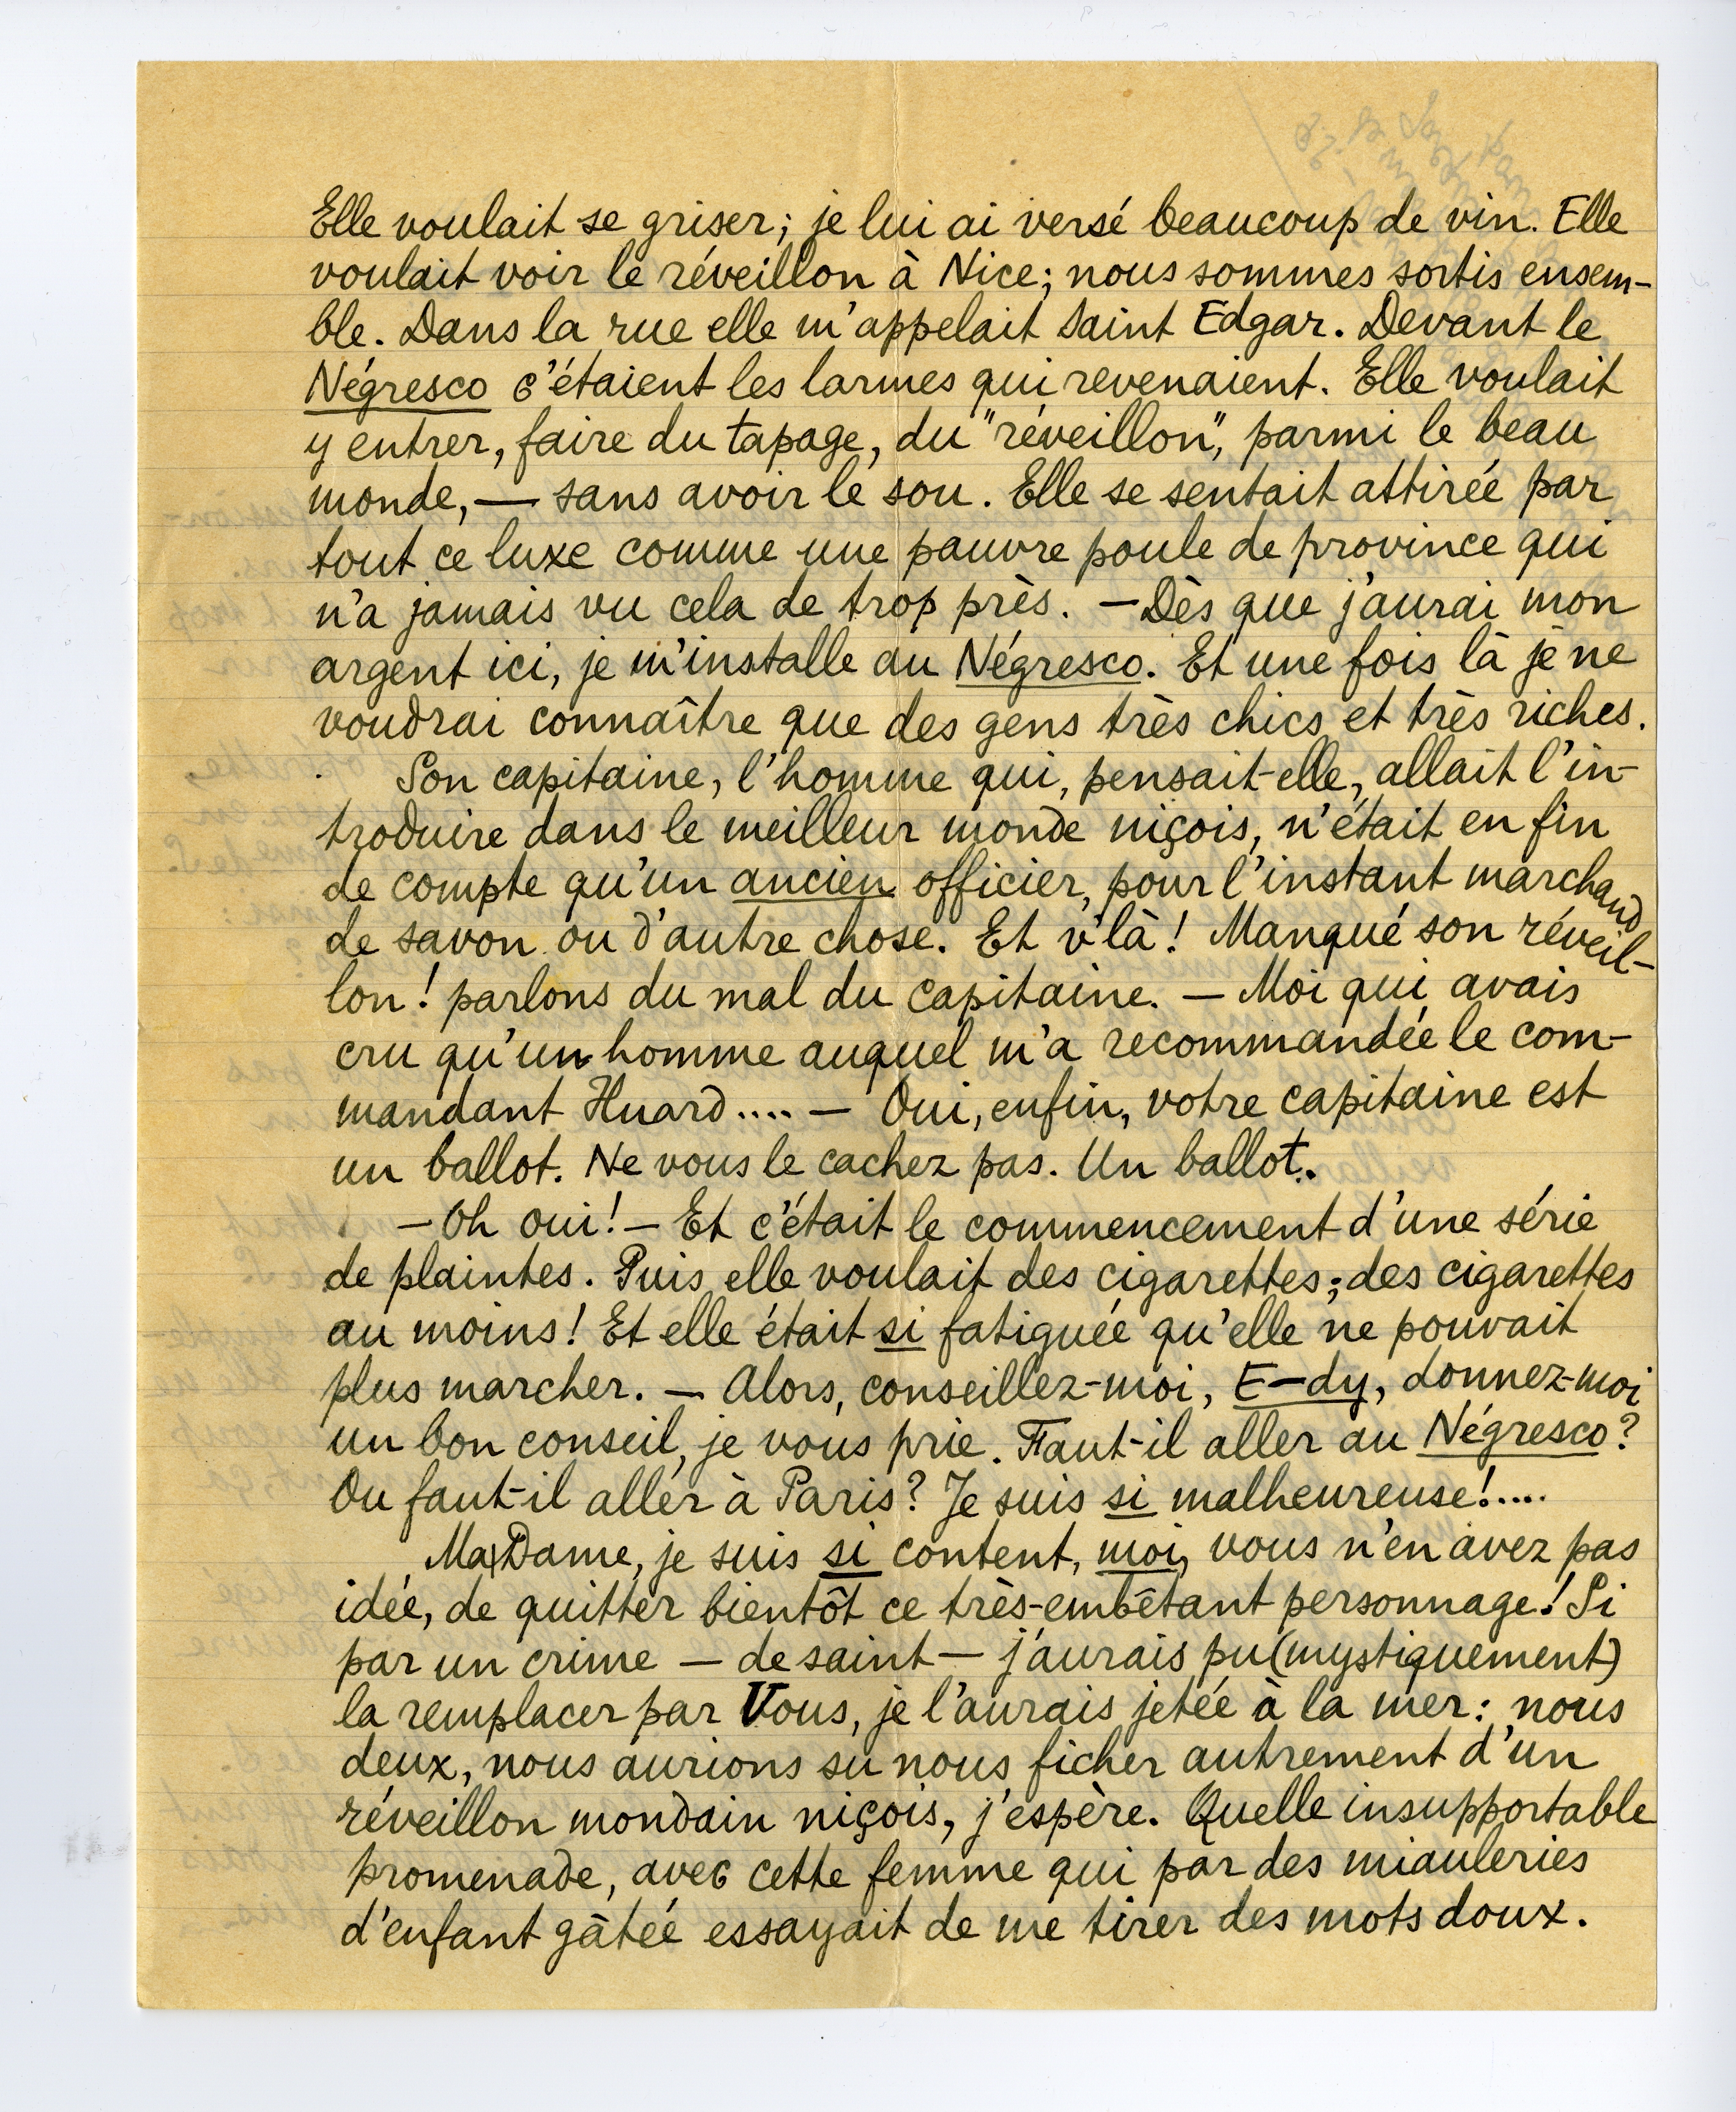 Elle voulait se griser; je lui ai versé beaucoup de vin. Elle
voulait voir le réveillon à Nice; nous sommes sortis ensem-
ble. Dans la rue elle m'appelait Saint Edgar. Devant le
Négresco c'étaient les larmes qui revenaient. Elle voulait
y entrer, faire du tapage, du "réveillon", parmi le beau
monde, — sans avoir le sou. Elle se sentait attirée par
tout ce luxe comme une pauvre poule de province qui
n'a jamais vu cela de trop près. — Dès que j'aurai mon
argent ici, je m'installe au Négresco. Et une fois là je ne
voudrai connaître que des gens très chics et très riches.
Son capitaine, l'homme qui, pensait-elle, allait l'in-
troduire dans le meilleur monde niçois, n'était en fin
de compte qu'un ancien officier, pour l'instant marchand
de savon ou d'autre chose. Et v'là! Manqué son réveil-
lon! parlons du mal du capitaine. — Moi qui avais
cru qu'un homme auquel m'a recommandée le com-
mandant Huard.... — Oui, enfin, votre capitaine est
un ballot. Ne vous le cachez pas. Un ballot.
— Oh oui! — Et c'était le commencement d'une série
de plaintes. Puis elle voulait des cigarettes; des cigarettes
au moins! Et elle était si fatiguée qu'elle ne pouvait
plus marcher. — Alors, conseillez-moi, E-dy, donnez-moi
un bon conseil, je vous prie. Faut-il aller au Négresco?
Ou faut-il aller à Paris? Je suis si malheureuse!....
Ma Dame, je suis si content, moi, vous n'en avez pas
idée, de quitter bientôt ce très-embêtant personnage! Si
par un crime — de saint — j'aurais pu (mystiquement)
la remplacer par Vous, je l'aurais jetée à la mer: nous
deux, nous aurions su nous ficher autrement d'un
réveillon mondain niçois, j'espère. Quelle insupportable
promenade, avec cette femme qui par des miauleries
d'enfant gâtée essayait de me tirer des mots doux.